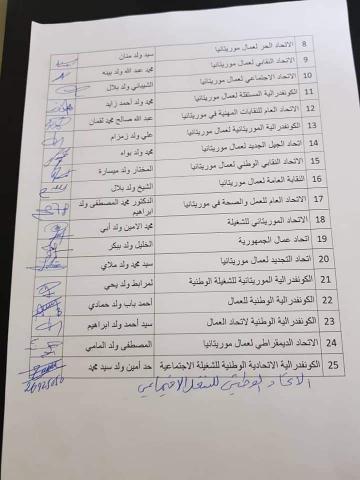 8 الاتحاد الحر لعمال موريتانيا سيد ولد منان
9 الاتحاد النقابي لعمال موريتانيا محمد عبد الله ولد بينه
10 الاتحاد الاجتماعي لعمال موريتانيا الشيباني ولد بلال
11 الكونفدرالية المستقلة لعمال موريتانيا محمد ولد أحمد زايد
12 الاتحاد العام للنقابات المهنية في موريتانيا عبد الله صالح محمد لقمان
13 الكونفدرالية الموريتانية لعمال موريتانيا علي ولد زمزام
14 اتحاد الجيل الجديد لعمال موريتانيا محمد ولد بواه
15 الاتحاد النقابي الوطني لعمال موريتانيا المختار ولد ميسارة
16 النقابة العامة لعمال موريتانيا الشيخ ولد بلال
17 الاتحاد العام للعمل والصحة في موريتانيا الدكتور محمد المصطفى ولد ابراهيم
18 الاتحاد الموريتاني للشغيلة محمد الامين ولد أبي
19 اتحاد عمال الجمهورية الخليل ولد ببكر
20 اتحاد التجديد لعمال موريتانيا سيد محمد ولد ملاي
21 الكونفدرالية الموريتانية للشغيلة الوطنية لمرابط ولد يحي
22 الكونفدرالية الوطنية للعمال أحمد باب ولد حمادي
23 الكونفدرالية الوطنية لاتحاد العمال سيد أحمد ولد ابراهيم
24 الاتحاد الديمقراطي لعمال موريتانيا المصطفى ولد المامي
25 الكونفدرالية الاتحادية الوطنية للشغيلة الاجتماعية حد أمين ولد سيد محمد
الاتحاد الوطني